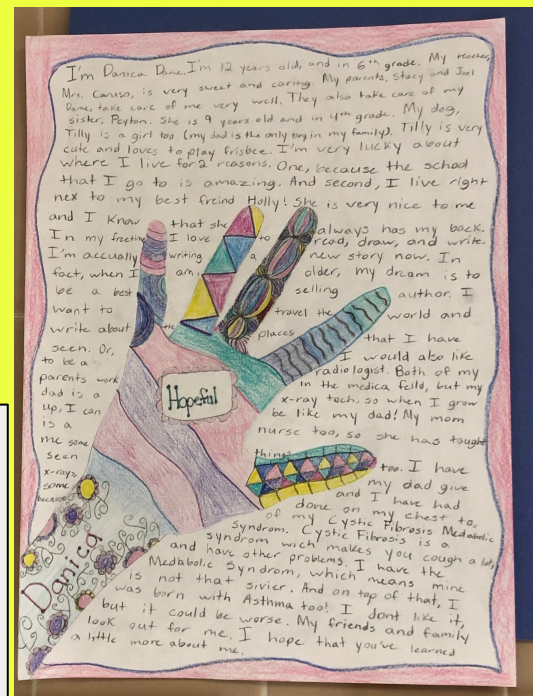 I'm Danica Dame. I'm 12 years old, and in 6th grade. My teacher,
Mrs. Caruso, is very sweet and caring. My parents, Stacy and Joel
Dame, take care of me very well. They also take care of my
sister, Peyton. She is 9 years old and in 4th grade. My dog,
Tilly is a girl too (my dad is the only boy in my family). Tilly is very
cute and loves to play frisbee. I'm very lucky about
where I live for 2 reasons. One, because the school
that I go to is amazing. And second, I live right
nex to my best freind Holly! She is very nice to me
and I know that she always has my back.
In my freetime I love to read, draw, and write.
I'm accually writing a new story now. In
fact, when I am older, my dream is to
be a best selling author. I
want to travel the world and
write about the places that I have
seen. Or, I would also like
to be a radiologist. Both of my
parents work in the medica feild, but my
dad is a x-ray tech, so when I grow
up, I can be like my dad! My mom
is a nurse too, so she has tought
me some things too. I have
seen my dad give
x-rays, and I have had
some done on my chest to,
because of my Cystic Fibrosis Medabolic
Syndrom. Cystic Fibrosis is a
syndrom wich makes you cough a lot,
and have other problems. I have the
Medabolic Syndrom, which means mine
is not that sivier. And on top of that, I
was born with Asthma too! I dont like it,
but it could be worse. My friends and family
look out for me. I hope that you've learned
a little more about me.
Hopeful
Danica